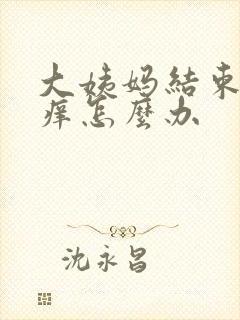 大姨妈結束
痒怎麼办
沈永昌